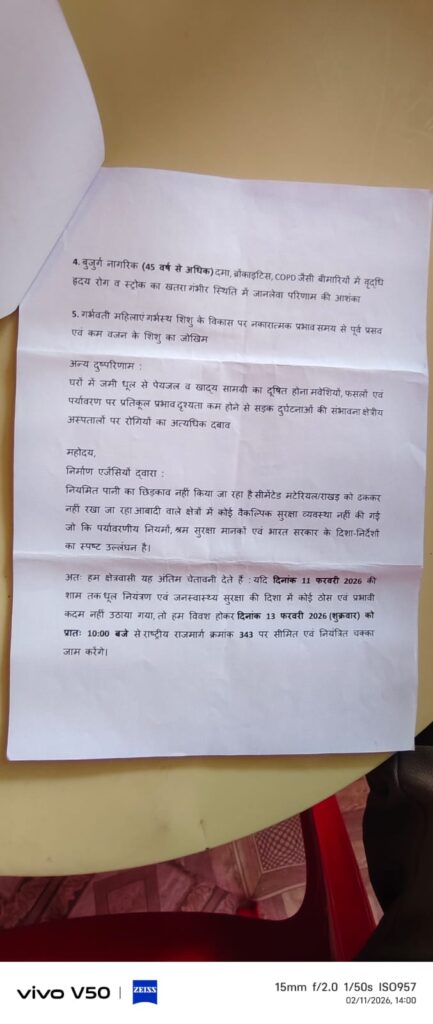 4. बुजुर्ग नागरिक (45 वर्ष से अधिक) दमा, ब्रोंकाइटिस, COPD जैसी बीमारियों में वृद्धि
हृदय रोग व स्ट्रोक का खतरा गंभीर स्थिति में जानलेवा परिणाम की आशंका
5. गर्भवती महिलाएं गर्भस्थ शिशु के विकास पर नकारात्मक प्रभाव समय से पूर्व प्रसव
एवं कम वजन के शिशु का जोखिम
अन्य दुष्परिणाम :
घरों में जमी धूल से पेयजल व खाद्य सामग्री का दूषित होना मवेशियों, फसलों एवं
पर्यावरण पर प्रतिकूल प्रभाव दृश्यता कम होने से सड़क दुर्घटनाओं की संभावना क्षेत्रीय
अस्पतालों पर रोगियों का अत्यधिक दबाव
महोदय,
निर्माण एजेंसियों द्वारा :
नियमित पानी का छिड़काव नहीं किया जा रहा है सीमेंटेड मटेरियल/राखड़ को ढककर
नहीं रखा जा रहा आबादी वाले क्षेत्रों में कोई वैकल्पिक सुरक्षा व्यवस्था नहीं की गई
जो कि पर्यावरणीय नियमों, श्रम सुरक्षा मानकों एवं भारत सरकार के दिशा-निर्देशों
का स्पष्ट उल्लंघन है।
अतः हम क्षेत्रवासी यह अंतिम चेतावनी देते हैं : यदि दिनांक 11 फरवरी 2026 की
शाम तक धूल नियंत्रण एवं जनस्वास्थ्य सुरक्षा की दिशा में कोई ठोस एवं प्रभावी
कदम नहीं उठाया गया, तो हम विवश होकर दिनांक 13 फरवरी 2026 (शुक्रवार) को
प्रातः 10:00 बजे से राष्ट्रीय राजमार्ग क्रमांक 343 पर सीमित एवं नियंत्रित चक्का
जाम करेंगे।
vivo V50 | ZEISS
15mm f/2.0 1/50s ISO957
02/11/2026, 14:00